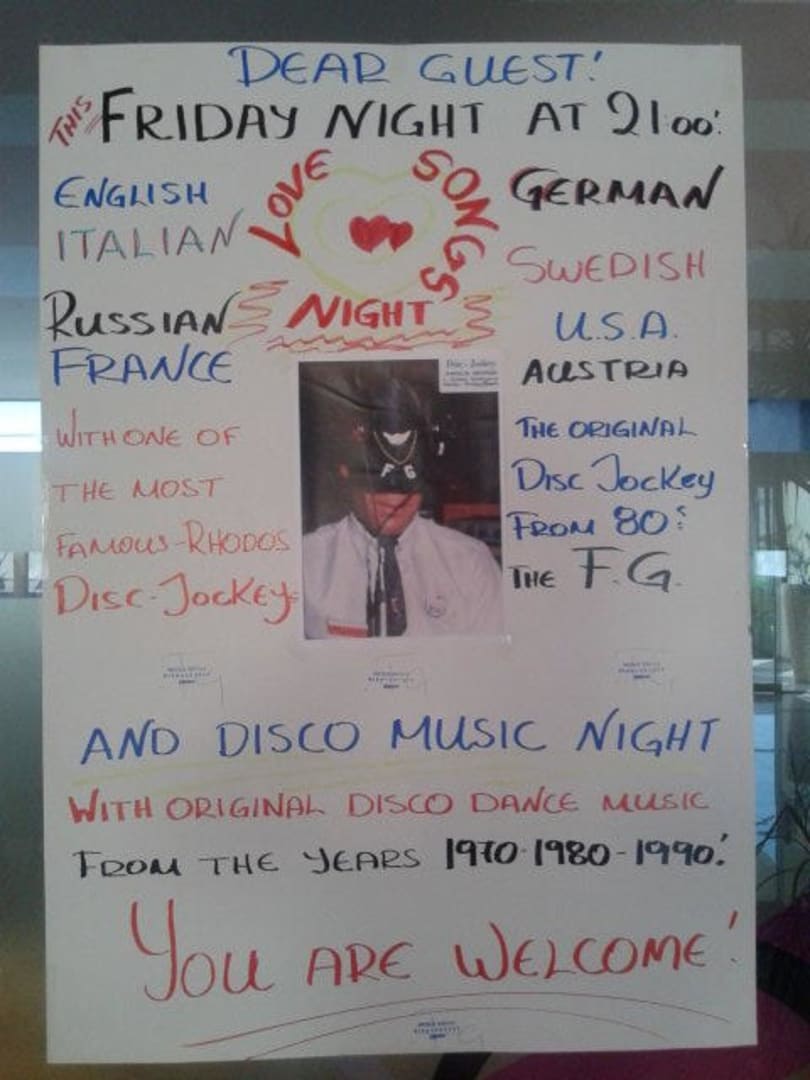 DEAR GUEST!
THIS FRIDAY NIGHT AT 21oo!
LOVE SONGS
NIGHT
ENGLISH
ITALIAN
RUSSIAN
FRANCE
GERMAN
SWEDISH
U.S.A.
AUSTRIA
WITH ONE OF
THE MOST
FAMOUS-RHODOS
DISC-JOCKEY:
Disc-Jockey
F G
THE ORIGINAL
DISC JOCKEY
FROM 80s:
THE F.G.
AND DISCO MUSIC NIGHT
WITH ORIGINAL DISCO DANCE MUSIC
FROM THE YEARS 1970-1980-1990!
YOU ARE WELCOME!